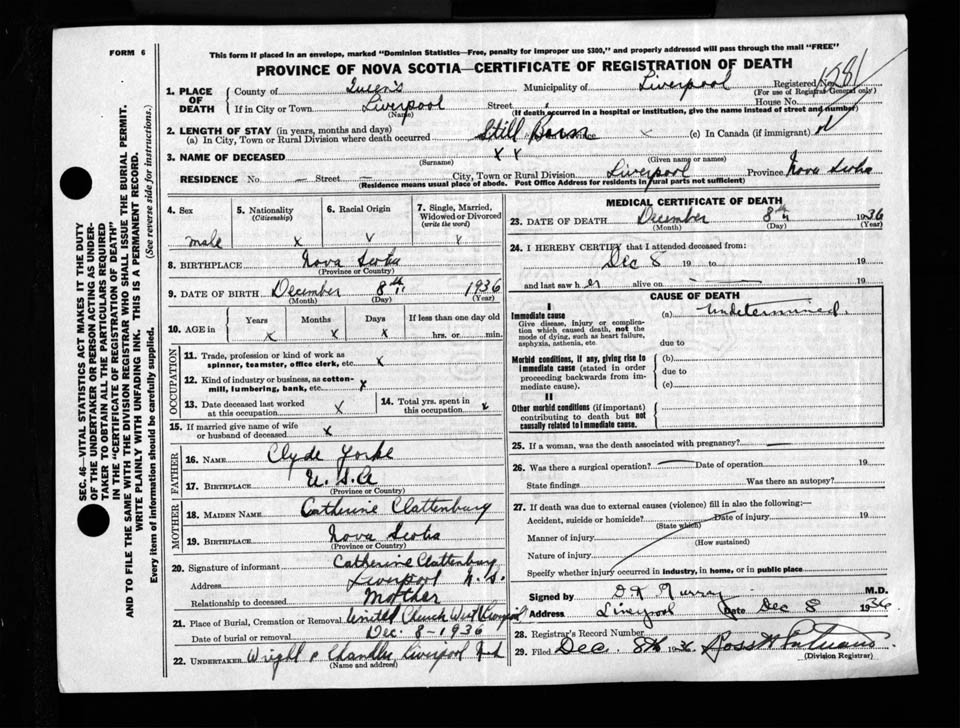 FORM 6
This form if placed in an envelope, marked "Dominion Statistics—Free, penalty for improper use $300," and properly addressed will pass through the mail "FREE"
PROVINCE OF NOVA SCOTIA—CERTIFICATE OF REGISTRATION OF DEATH
1281
1. PLACE OF DEATH
County of Queen's Municipality of Liverpool Registered No.
(For use of Registrar General only)
If in City or Town Liverpool Street House No.
(Name) (If death occurred in a hospital or institution, give the name instead of street and number)
2. LENGTH OF STAY (in years, months and days)
(a) In City, Town or Rural Division where death occurred Still Born (c) In Canada (if immigrant)
3. NAME OF DECEASED x x
(Surname) (Given name or names)
RESIDENCE No. — Street — City, Town or Rural Division Liverpool Province Nova Scotia
(Residence means usual place of abode. Post Office Address for residents in rural parts not sufficient)
4. Sex
male
5. Nationality
(Citizenship)
x
6. Racial Origin
7. Single, Married, Widowed or Divorced
(write the word)
8. BIRTHPLACE Nova Scotia
(Province or Country)
9. DATE OF BIRTH December 8th 1936
(Month) (Day) (Year)
10. AGE in
Years Months Days If less than one day old
x x x hrs. or min.
OCCUPATION
11. Trade, profession or kind of work as spinner, teamster, office clerk, etc. x
12. Kind of industry or business, as cotton-mill, lumbering, bank, etc. x
13. Date deceased last worked at this occupation x
14. Total yrs. spent in this occupation x
15. If married give name of wife or husband of deceased x
FATHER
16. NAME Clyde Yorke
17. BIRTHPLACE U.S.A
(Province or Country)
MOTHER
18. MAIDEN NAME Catherine Clattenburg
19. BIRTHPLACE Nova Scotia
(Province or Country)
20. Signature of informant Catherine Clattenburg
Address Liverpool N.S.
Relationship to deceased Mother
21. Place of Burial, Cremation or Removal United Church West Liverpool
Date of burial or removal Dec. 8-1936
22. UNDERTAKER Wright & Chandler Liverpool
(Name and address)
MEDICAL CERTIFICATE OF DEATH
23. DATE OF DEATH December 8th 1936
(Month) (Day) (Year)
24. I HEREBY CERTIFY that I attended deceased from:
Dec 8 19 to 19
and last saw her alive on — 19
CAUSE OF DEATH
I
Immediate cause
Give disease, injury or complication which caused death, not the mode of dying, such as heart failure, asphyxia, asthenia, etc.
(a) Undetermined.
due to
Morbid conditions, if any, giving rise to immediate cause (stated in order proceeding backwards from immediate cause).
(b)
due to
(c)
II
Other morbid conditions (if important) contributing to death but not causally related to immediate cause.
25. If a woman, was the death associated with pregnancy? —
26. Was there a surgical operation? — Date of operation 19
State findings Was there an autopsy?
27. If death was due to external causes (violence) fill in also the following:—
Accident, suicide or homicide? Date of injury 19
(State which)
Manner of injury
(How sustained)
Nature of injury
Specify whether injury occurred in industry, in home, or in public place
Signed by Murray M.D.
Address Liverpool Date Dec 8 1936
28. Registrar's Record Number
29. Filed Dec. 8th 1936
(Division Registrar)
SEC. 46—VITAL STATISTICS ACT MAKES IT THE DUTY
OF THE UNDERTAKER OR PERSON ACTING AS UNDER-
TAKER TO OBTAIN ALL THE PARTICULARS REQUIRED
IN THE "CERTIFICATE OF REGISTRATION OF DEATH"
AND TO FILE THE SAME WITH THE DIVISION REGISTRAR WHO SHALL ISSUE THE BURIAL PERMIT.
WRITE PLAINLY WITH UNFADING INK. THIS IS A PERMANENT RECORD.
(See reverse side for instructions.)
Every item of information should be carefully supplied.